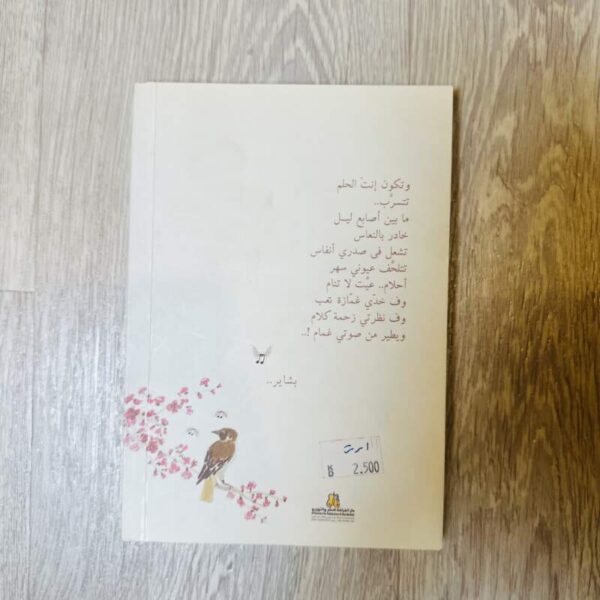 وتكون إنتَ الحلم
تتسرَّب..
ما بين أصابع ليـل
خادر بالنعاس
تشعل فى صدري أنفاس
تتلحَّف عيوني سهر
أحلام.. عيَّت لا تنام
وف خدّي غمّازة تعب
وف نظرتي زحمة كلام
ويطير من صوتي غمام !..
بشاير..
2.500
دار الفراشة للنشر والتوزيع